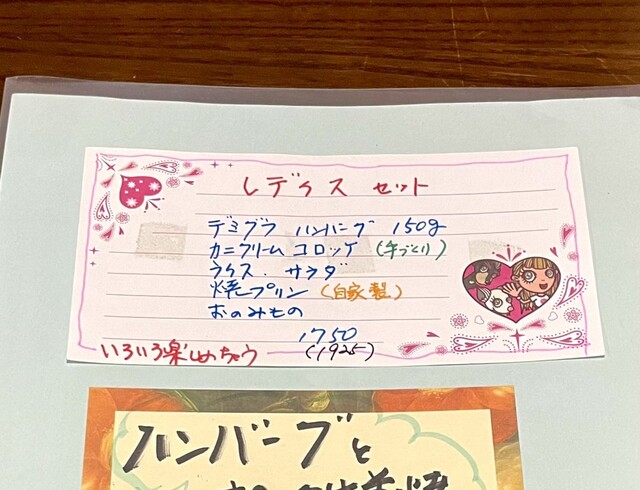 レディス セット
デミグラ ハンバーグ 150g
カニクリーム コロッケ (手づくり)
ライス・サラダ
焼プリン (自家製)
おのみもの
1750
(1925)
いろいろ楽しめちゃう
ハンバーグと